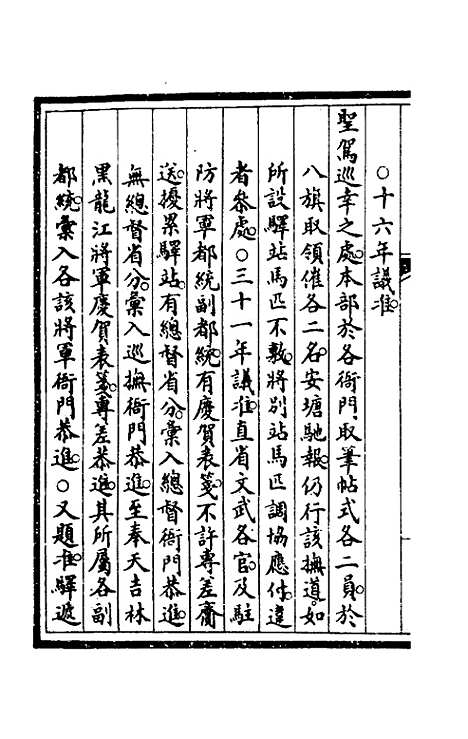 ○十六年議准。
聖駕巡幸之處。本部於各衙門。取筆帖式各二員。於
八旗取領催各二名。安塘馳報。仍行該撫道。如
所設驛站馬匹不敷。將別站馬匹調協應付。違
者叅處。○三十一年議准。直省文武各官。及駐
防將軍都統副都統。有慶賀表箋。不許專差齎
送。擾累驛站。有總督省分。彙入總督衙門恭進。
無總督省分。彙入巡撫衙門恭進。至奉天吉林
黑龍江將軍慶賀表箋。專差恭進。其所屬各副
都統。彙入各該將軍衙門恭進。○又題准。驛遞